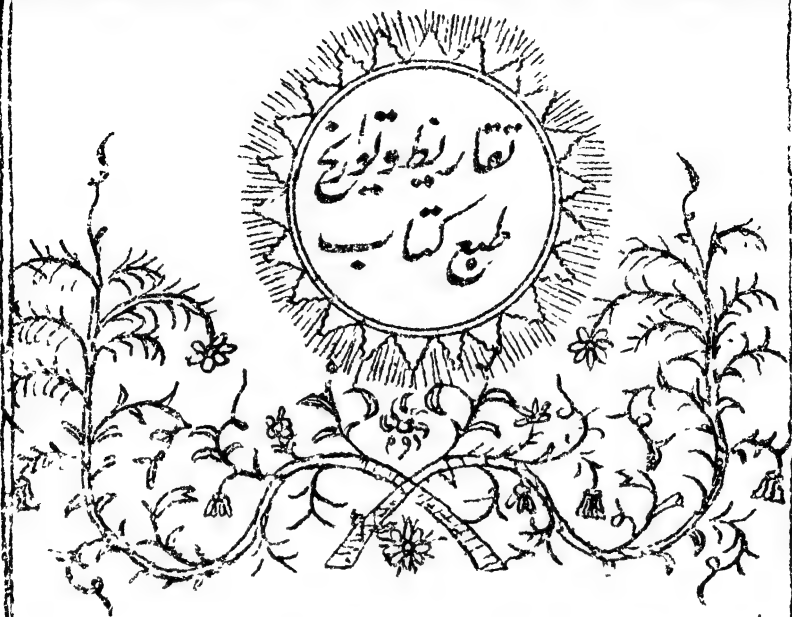 تقاریظ و تواریخ
طبع کتاب
دوم